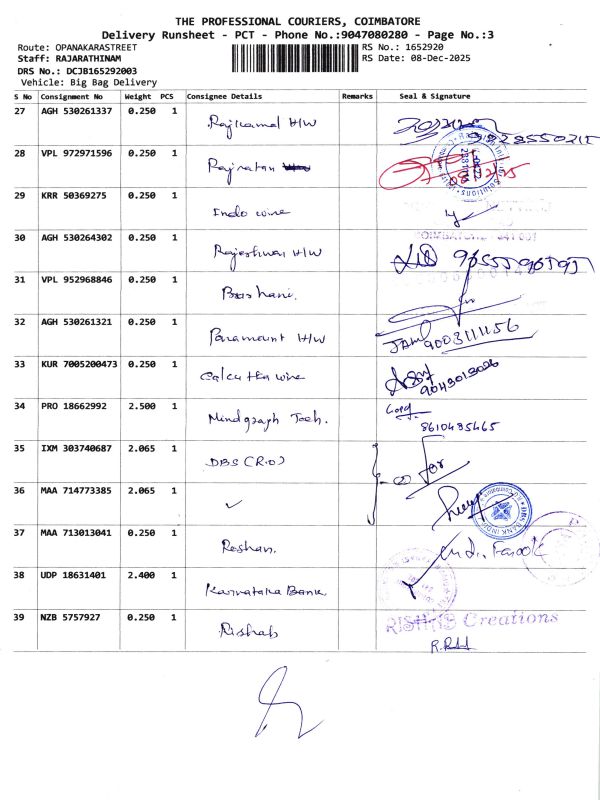 THE PROFESSIONAL COURIERS, COIMBATORE
Delivery Runsheet - PCT - Phone No.:9047080280 - Page No.:3
Route: OPANAKARASTREET RS No.: 1652920
Staff: RAJARATHINAM RS Date: 08-Dec-2025
DRS No.: DCJB165292003
Vehicle: Big Bag Delivery
S No Consignment No Weight PCS Consignee Details Remarks Seal & Signature
27 AGH 530261337 0.250 1 Rajkamal H/W
28 VPL 972971596 0.250 1 Rajratan
29 KRR 50369275 0.250 1 Indo wire
30 AGH 530264302 0.250 1 Rajeshwari H/W
31 VPL 952968846 0.250 1
32 AGH 530261321 0.250 1 Paramount H/W 9003111156
33 KUR 7005200473 0.250 1 Calcutta wire 9043013026
34 PRO 18662992 2.500 1 Mindgraph Tech. 8610435465
35 IXM 303740687 2.065 1 DBS (R.O) for
36 MAA 714773385 2.065 1
37 MAA 713013041 0.250 1 Roshan.
38 UDP 18631401 2.400 1 Karnataka Bank
39 NZB 5757927 0.250 1 Rishab RISHAB Creations